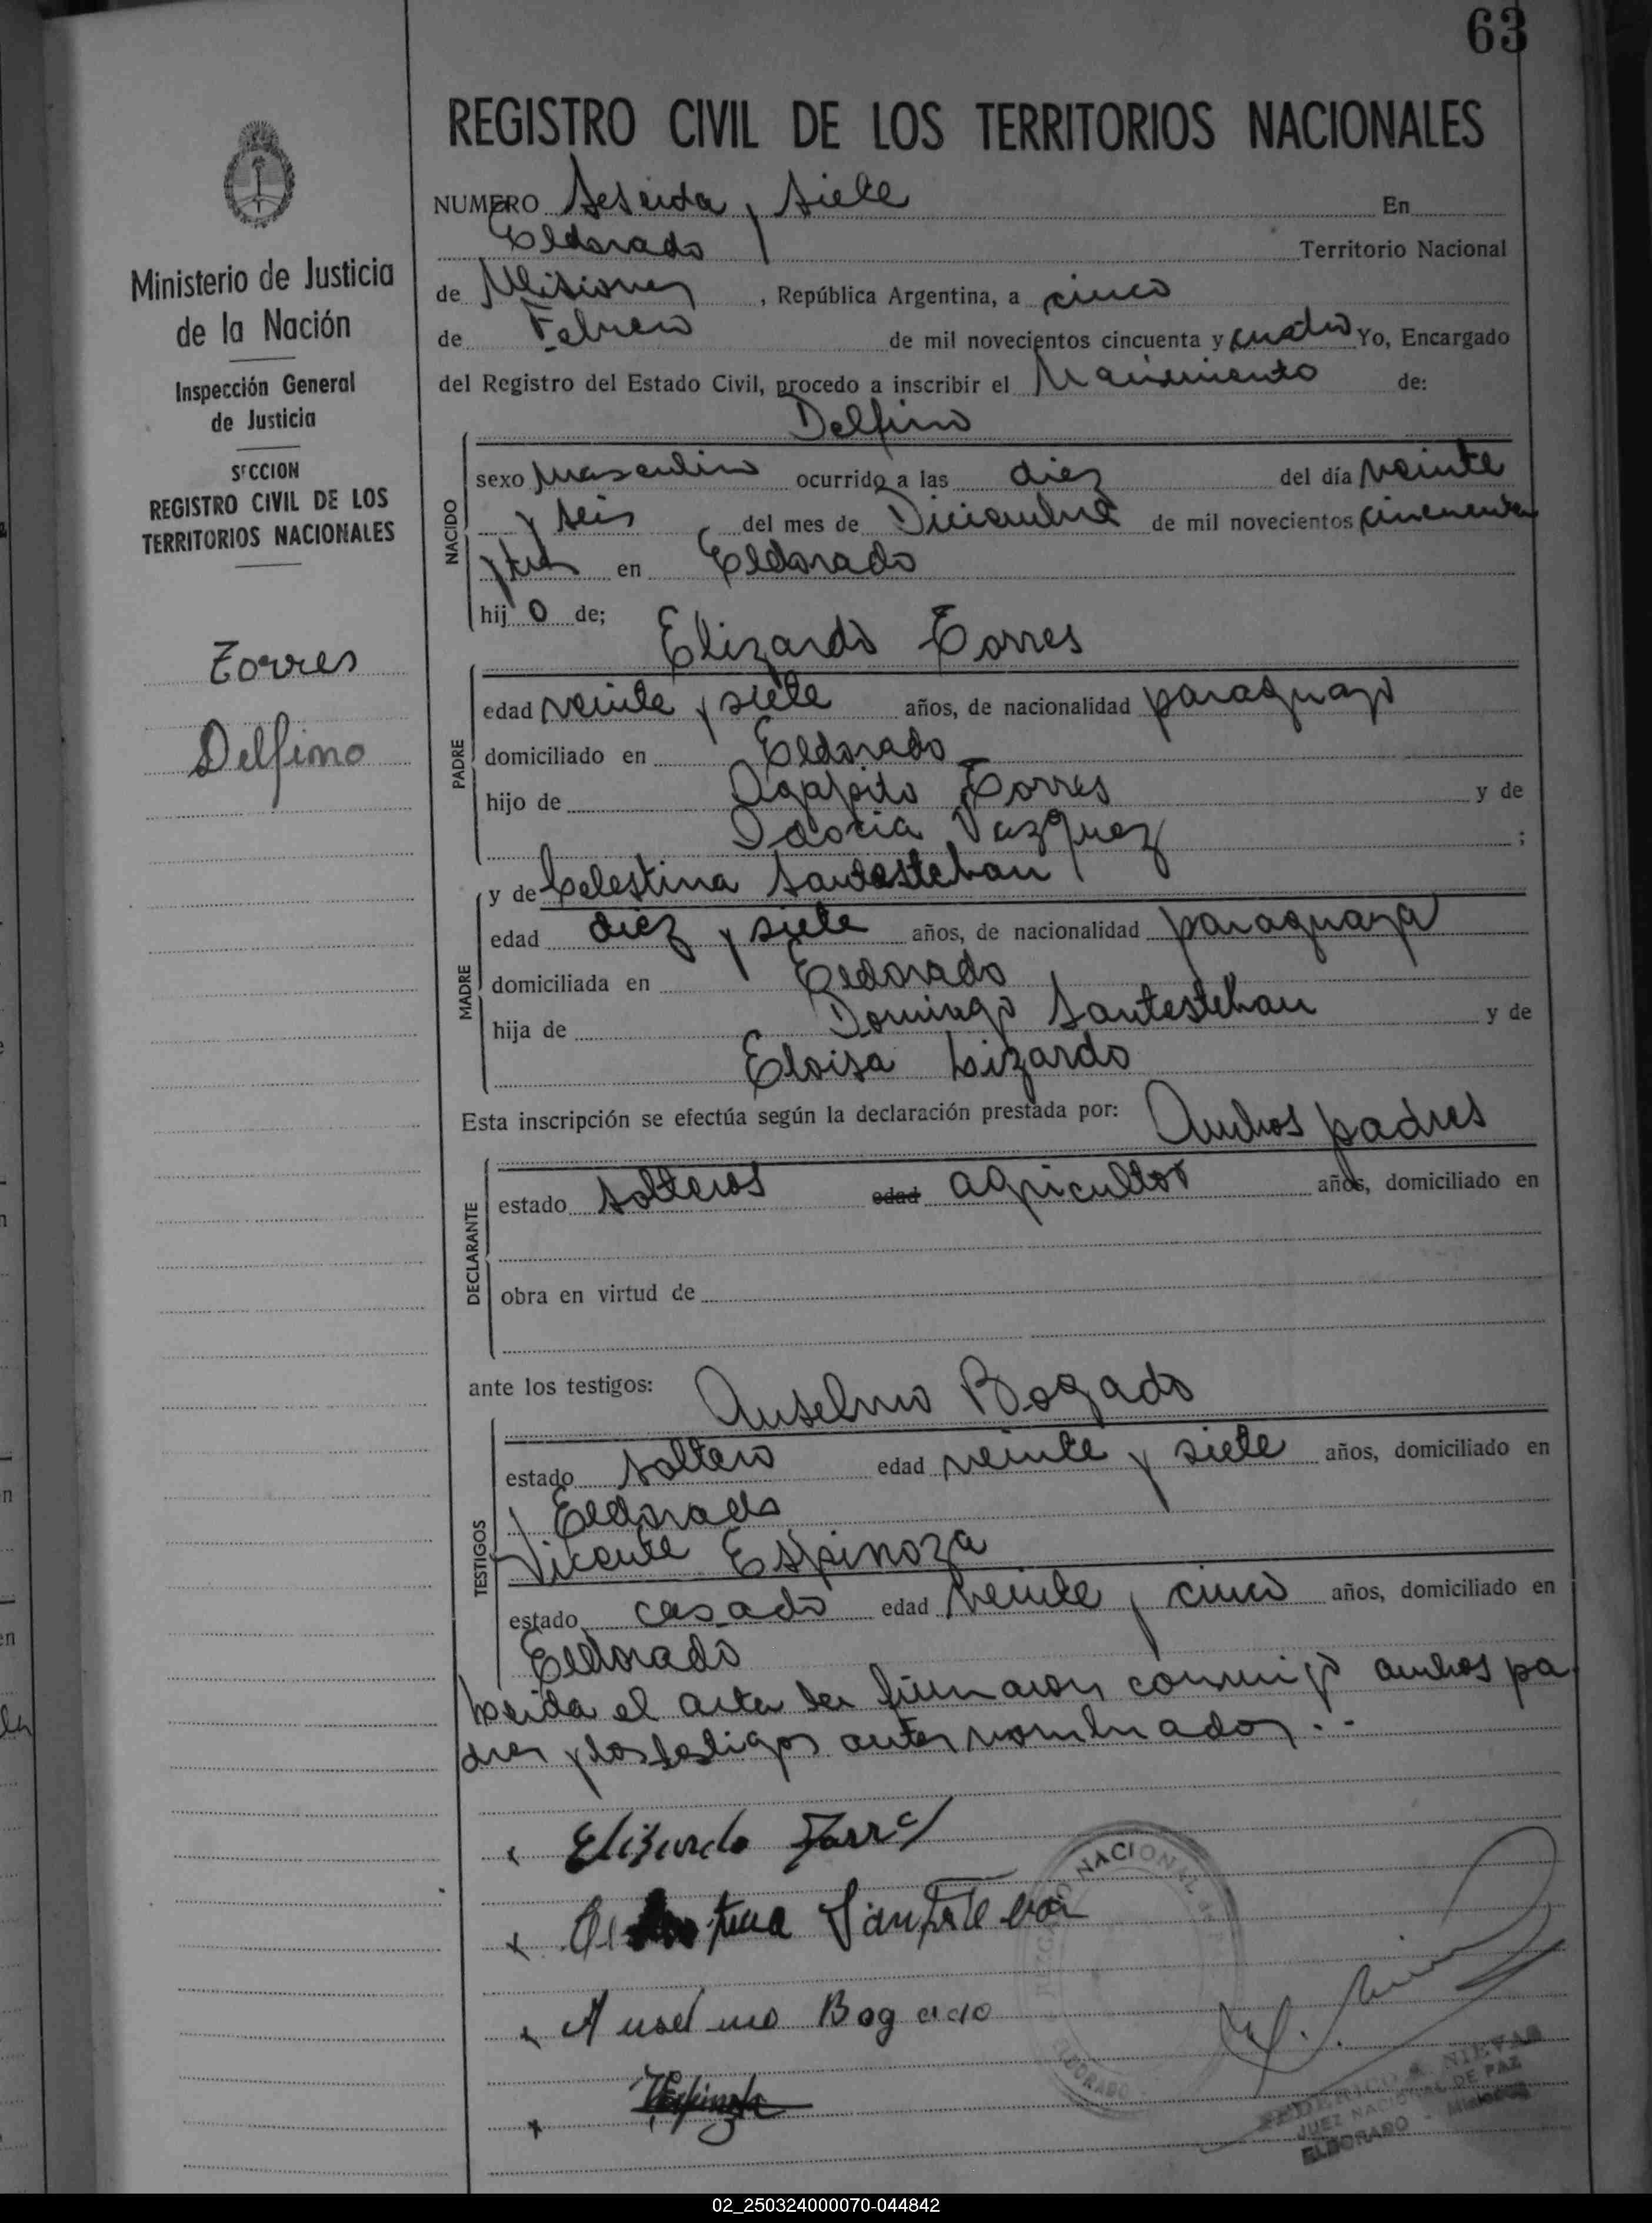 63
REGISTRO CIVIL DE LOS TERRITORIOS NACIONALES
Ministerio de Justicia
de la Nación
Inspección General
de Justicia
SECCION
REGISTRO CIVIL DE LOS
TERRITORIOS NACIONALES
Torres
Delfino
NUMERO Sesenta y siete En
Eldorado Territorio Nacional
de Misiones, República Argentina, a cinco
de Febrero de mil novecientos cincuenta y cuatro Yo, Encargado
del Registro del Estado Civil, procedo a inscribir el Nacimiento de:
Delfino
NACIDO
sexo masculino ocurrido a las diez del día veinte
y seis del mes de Diciembre de mil novecientos cincuenta
y tres en Eldorado
hij o de;
Elizardo Torres
PADRE
edad veinte y siete años, de nacionalidad paraguayo
domiciliado en Eldorado
hijo de Agapito Torres y de
Vazquez ;
y de Celestina Santesteban
MADRE
edad diez y siete años, de nacionalidad paraguaya
domiciliada en Eldorado
hija de Domingo Santesteban y de
Eloisa Lizardo
Esta inscripción se efectúa según la declaración prestada por: Ambos padres
DECLARANTE
estado solteros edad agricultor años, domiciliado en
obra en virtud de
ante los testigos: Anselmo Bogado
TESTIGOS
estado soltero edad veinte y siete años, domiciliado en
Eldorado
Vicente Espinoza
estado casado edad veinte y cinco años, domiciliado en
Eldorado
Leida el acta la firmaron conmigo ambos pa
dres y los testigos antes nombrados.-
Elizardo Torres
Santesteban
Anselmo Bogado
VEspinoza
NACIONAL
ELDORADO
FEDERICO A. NIEVAS
JUEZ NACIONAL DE PAZ
ELDORADO - Misiones
02_250324000070-044842